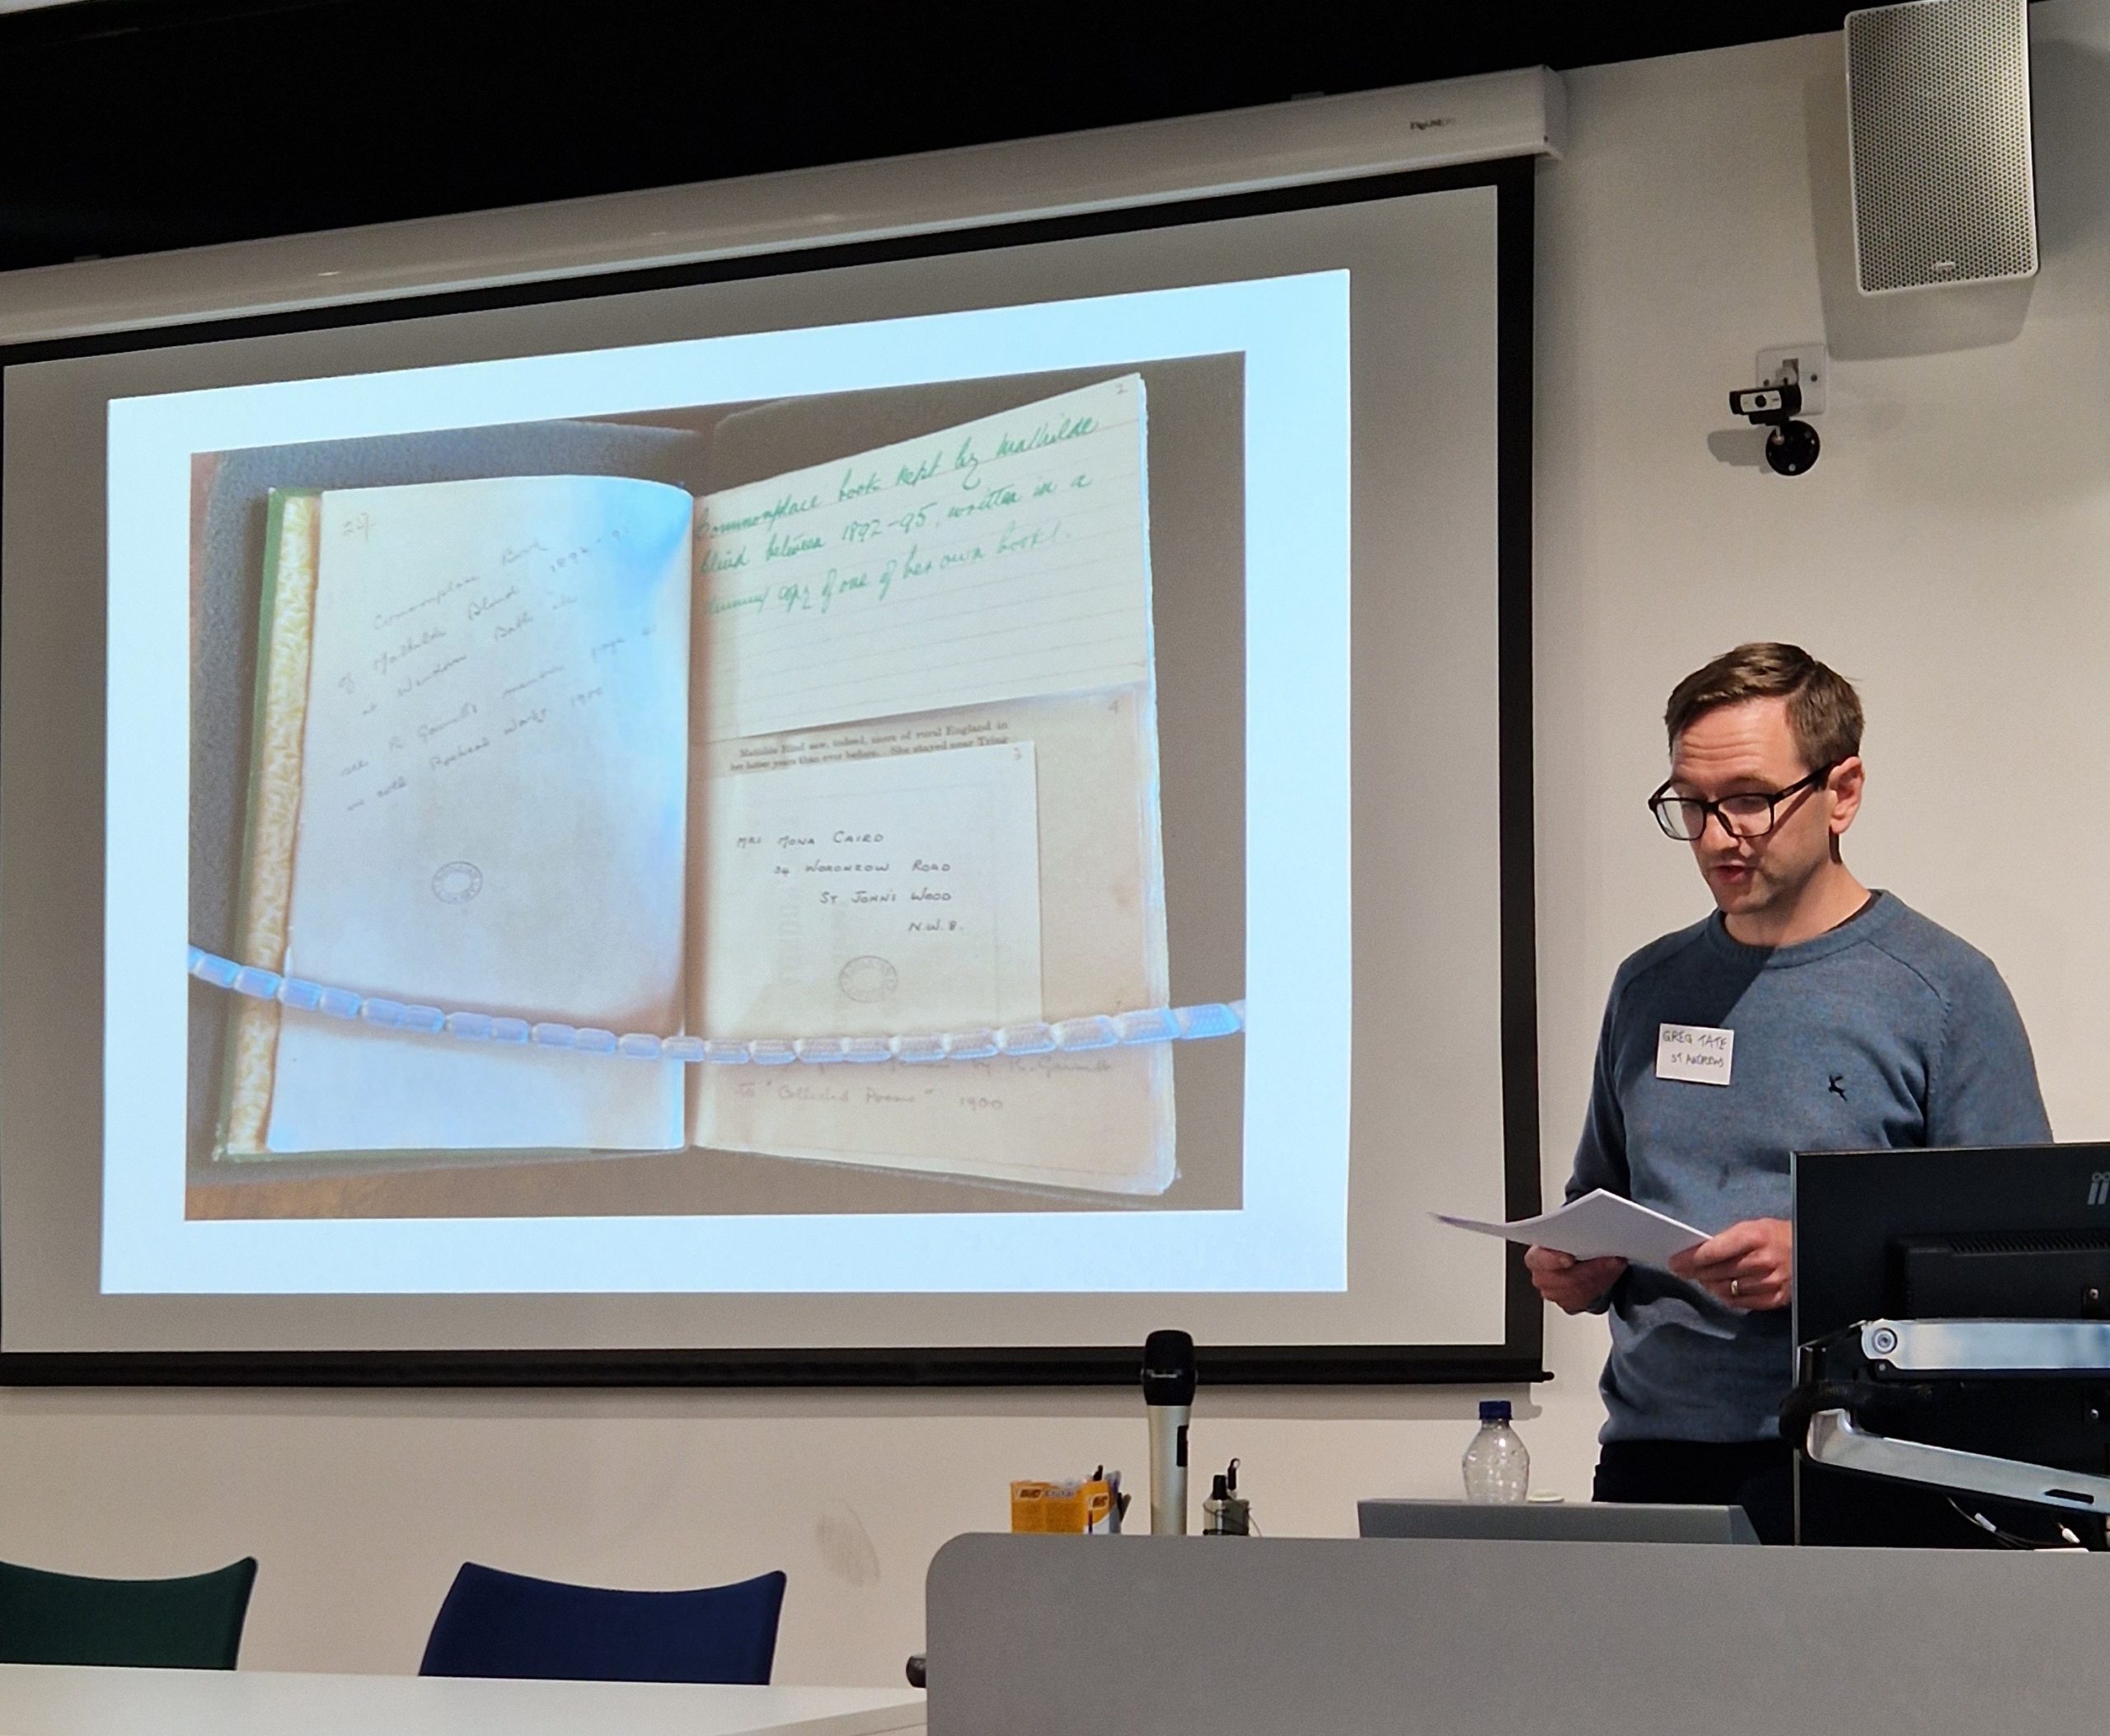 29
Commonplace Book
of Mathilde Blind 1892-9
at Wendover Bath etc
see R. Garnett's memoir page
1900
2
Commonplace book kept by Mathilde
Blind between 1892-95, written in a
dummy copy of one of her own books.
4
Mathilde Blind saw, indeed, more of rural England in
her latter years than ever before. She stayed near Tring
3
MRS MONA CAIRD
34 WORONZOW ROAD
ST JOHN'S WOOD
N.W.8.
by R. Garnett
to "Collected Poems" 1900
GREG TATE
ST ANDREWS
BIC
BIC